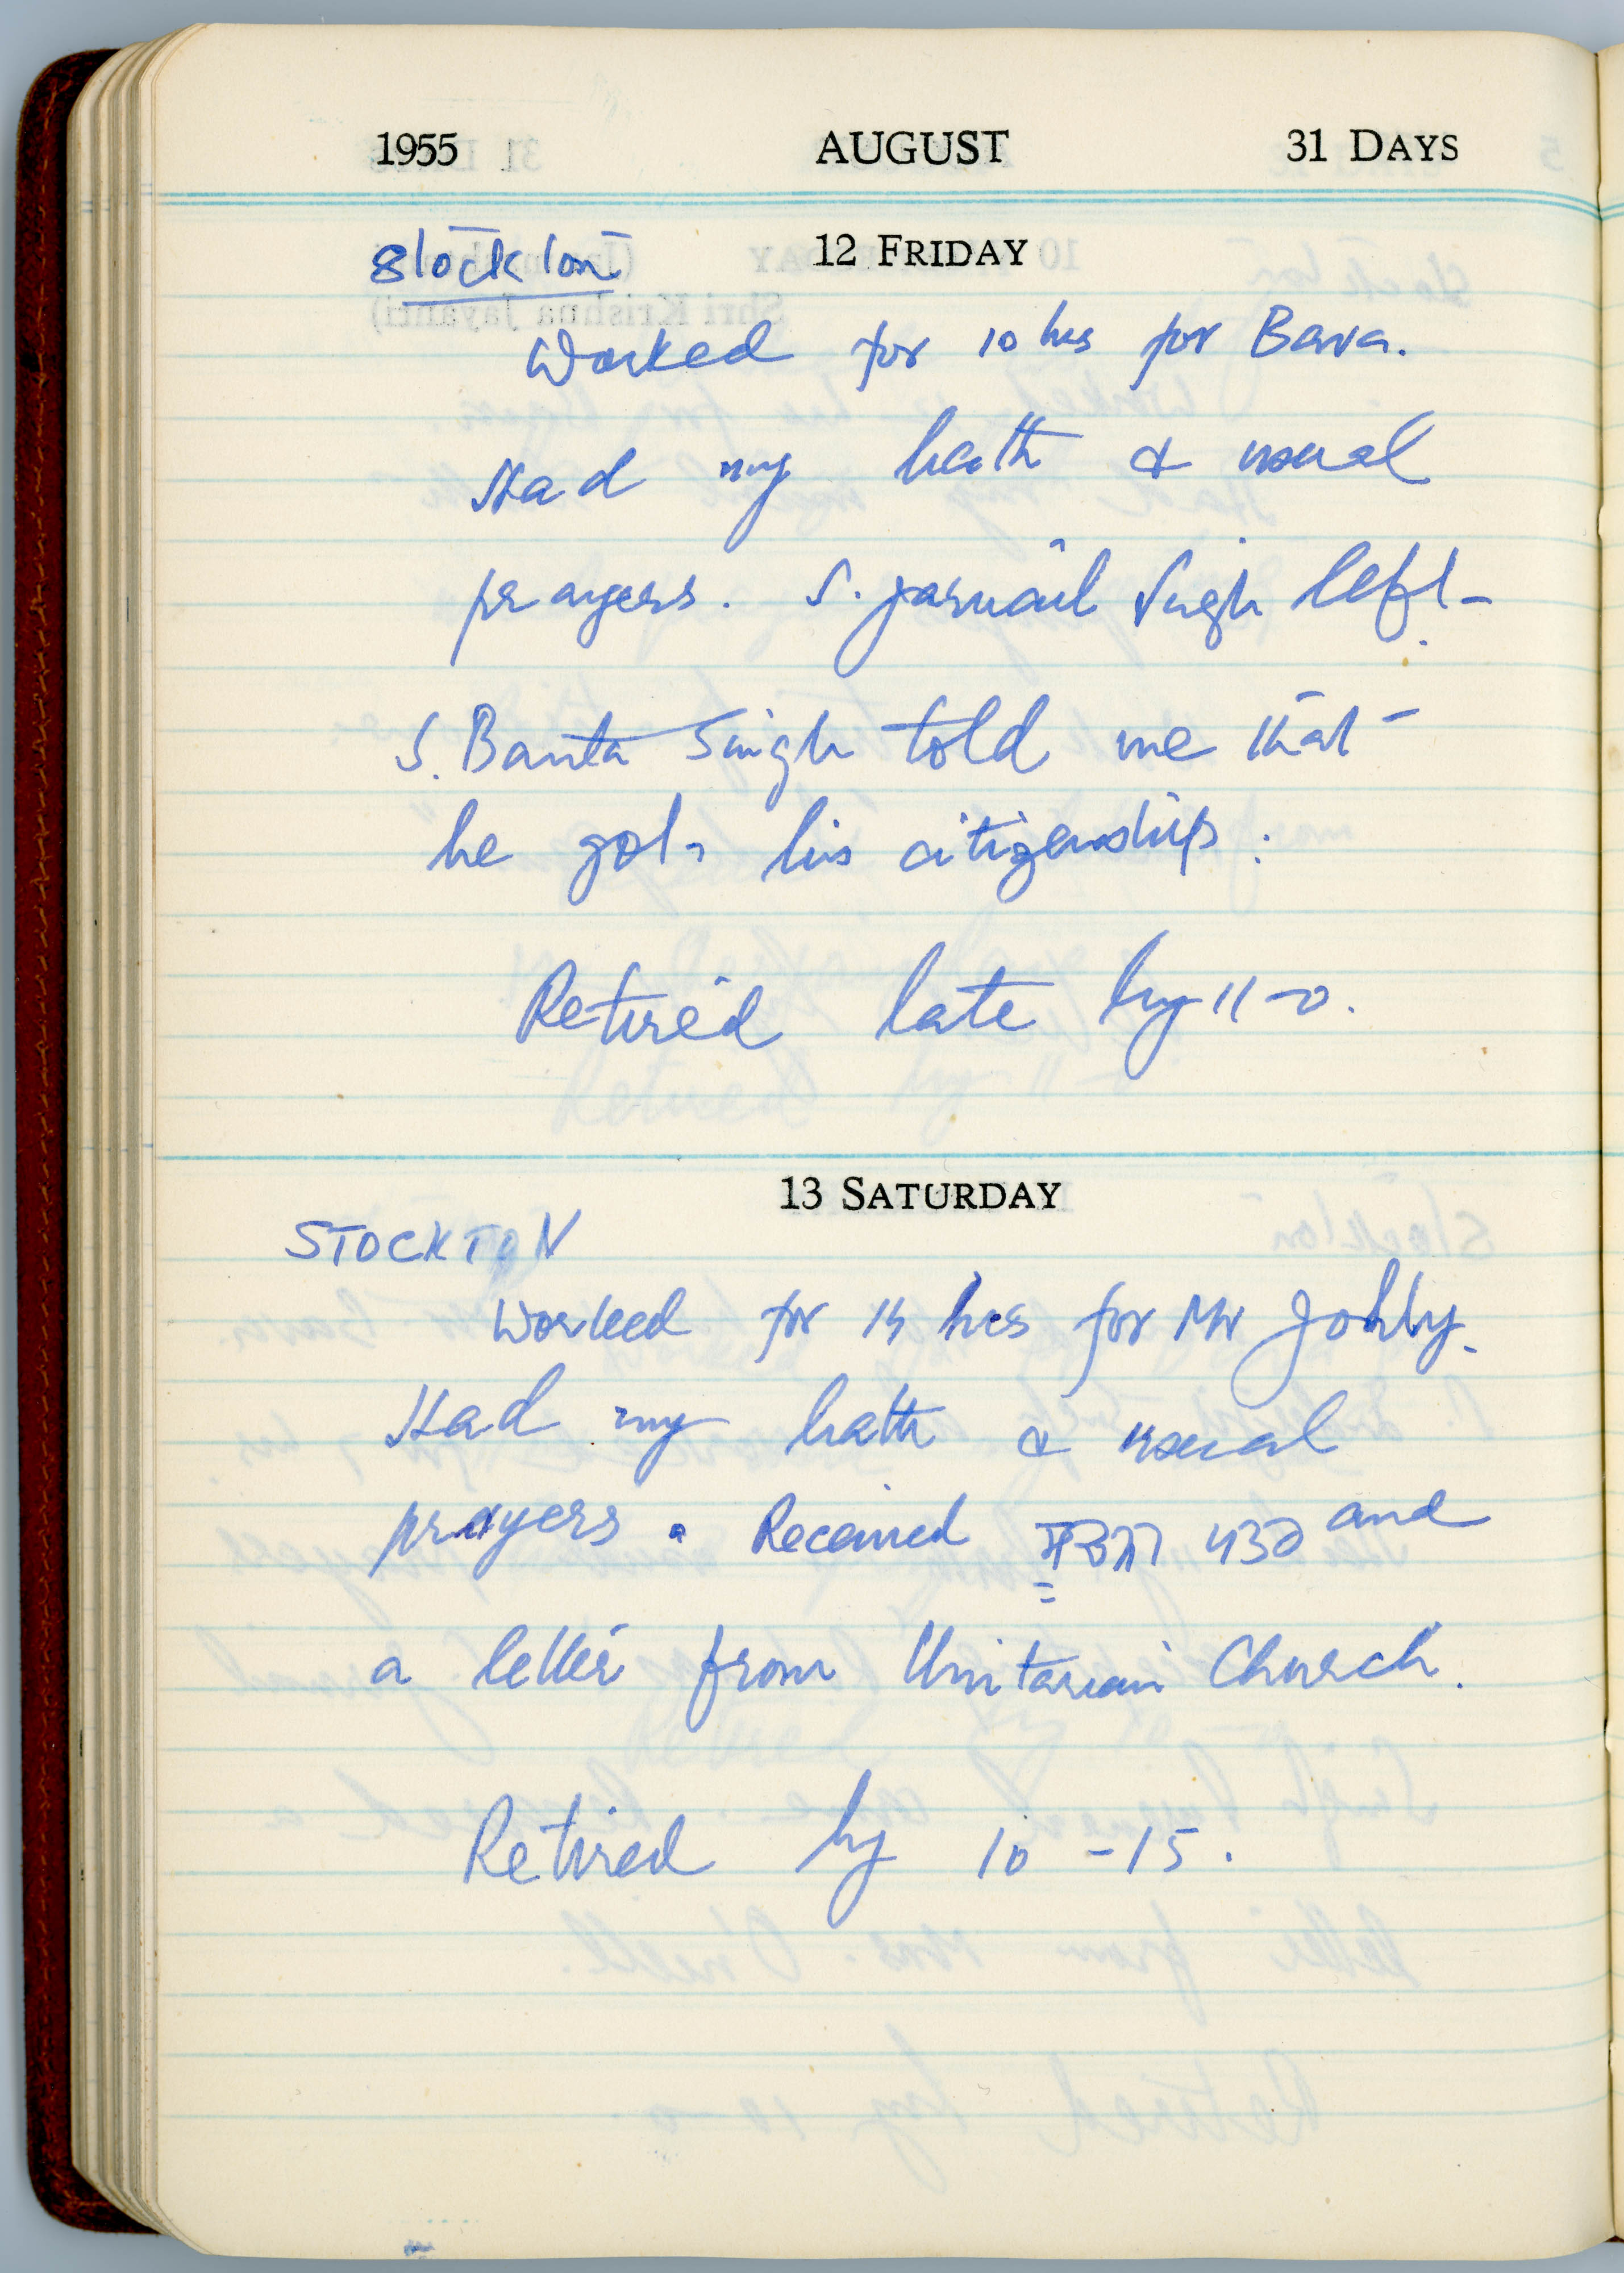 1955 AUGUST 31 DAYS
12 FRIDAY
Stockton
Worked for 10 hrs for Bava.
Had my bath & usual
prayers. S. Jarnail Singh left-
S. Banta Singh told me that
he got his citizenship.
Retired late by 11-0.
13 SATURDAY
STOCKTON
Worked for hrs for Mr
Had my bath & usual
prayers. Received and
a letter from Unitarian Church.
Retired by 10-15.